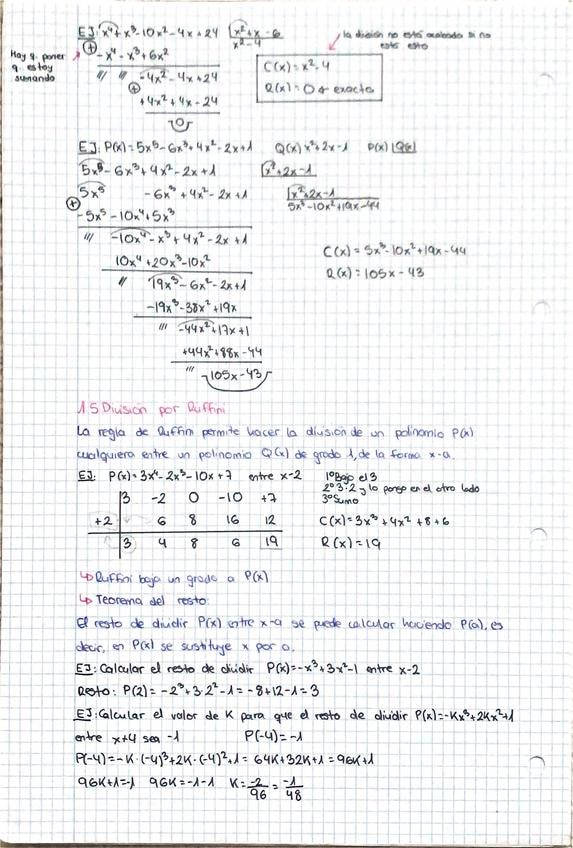 EJ: x⁴+x³-10x²-4x+24 | x²+x-6
la división no está acabada si no está esto
Hay q. poner q. estoy sumando
⊕ -x⁴-x³+6x²
x²-4
// // -4x²-4x+24
⊕ +4x²+4x-24
0
C(x)=x²-4
R(x)=0 → exacta
EJ: P(x)=5x⁵-6x³+4x²-2x+1 Q(x) x²+2x-1 P(x) | Q(x)
5x⁵-6x³+4x²-2x+1 | x²+2x-1
5x⁵ -6x³+4x²-2x+1 | x²+2x-1
⊕ -5x⁵-10x⁴+5x³
5x³-10x²+19x-44
/// -10x⁴-x³+4x²-2x+1
10x⁴+20x³-10x²
// 19x³-6x²-2x+1
-19x³-38x²+19x
/// -44x²+17x+1
+44x²+88x-44
/// 105x-43
C(x)=5x³-10x²+19x-44
R(x)=105x-43
1.5 División por Ruffini
La regla de Ruffini permite hacer la división de un polinomio P(x)
cualquiera entre un polinomio Q(x) de grado 1, de la forma x-a.
EJ: P(x)=3x⁴-2x³-10x+7 entre x-2
1º Bajo el 3
2º 3·2 y lo pongo en el otro lado
3º Sumo
3 -2 0 -10 +7
+2 6 8 16 12
3 4 8 6 19
C(x)=3x³+4x²+8+6
R(x)=19
↳ Ruffini baja un grado a P(x)
↳ Teorema del resto:
El resto de dividir P(x) entre x-a se puede calcular haciendo P(a), es
decir, en P(x) se sustituye x por a.
EJ: Calcular el resto de dividir P(x)=-x³+3x²-1 entre x-2
Resto: P(2)=-2³+3·2²-1=-8+12-1=3
EJ: Calcular el valor de K para que el resto de dividir P(x)=-Kx³+2Kx²+1
entre x+4 sea -1 P(-4)=-1
P(-4)=-K·(-4)³+2K·(-4)²+1=64K+32K+1=96K+1
96K+1=-1 96K=-1-1 K=-2/96=-1/48